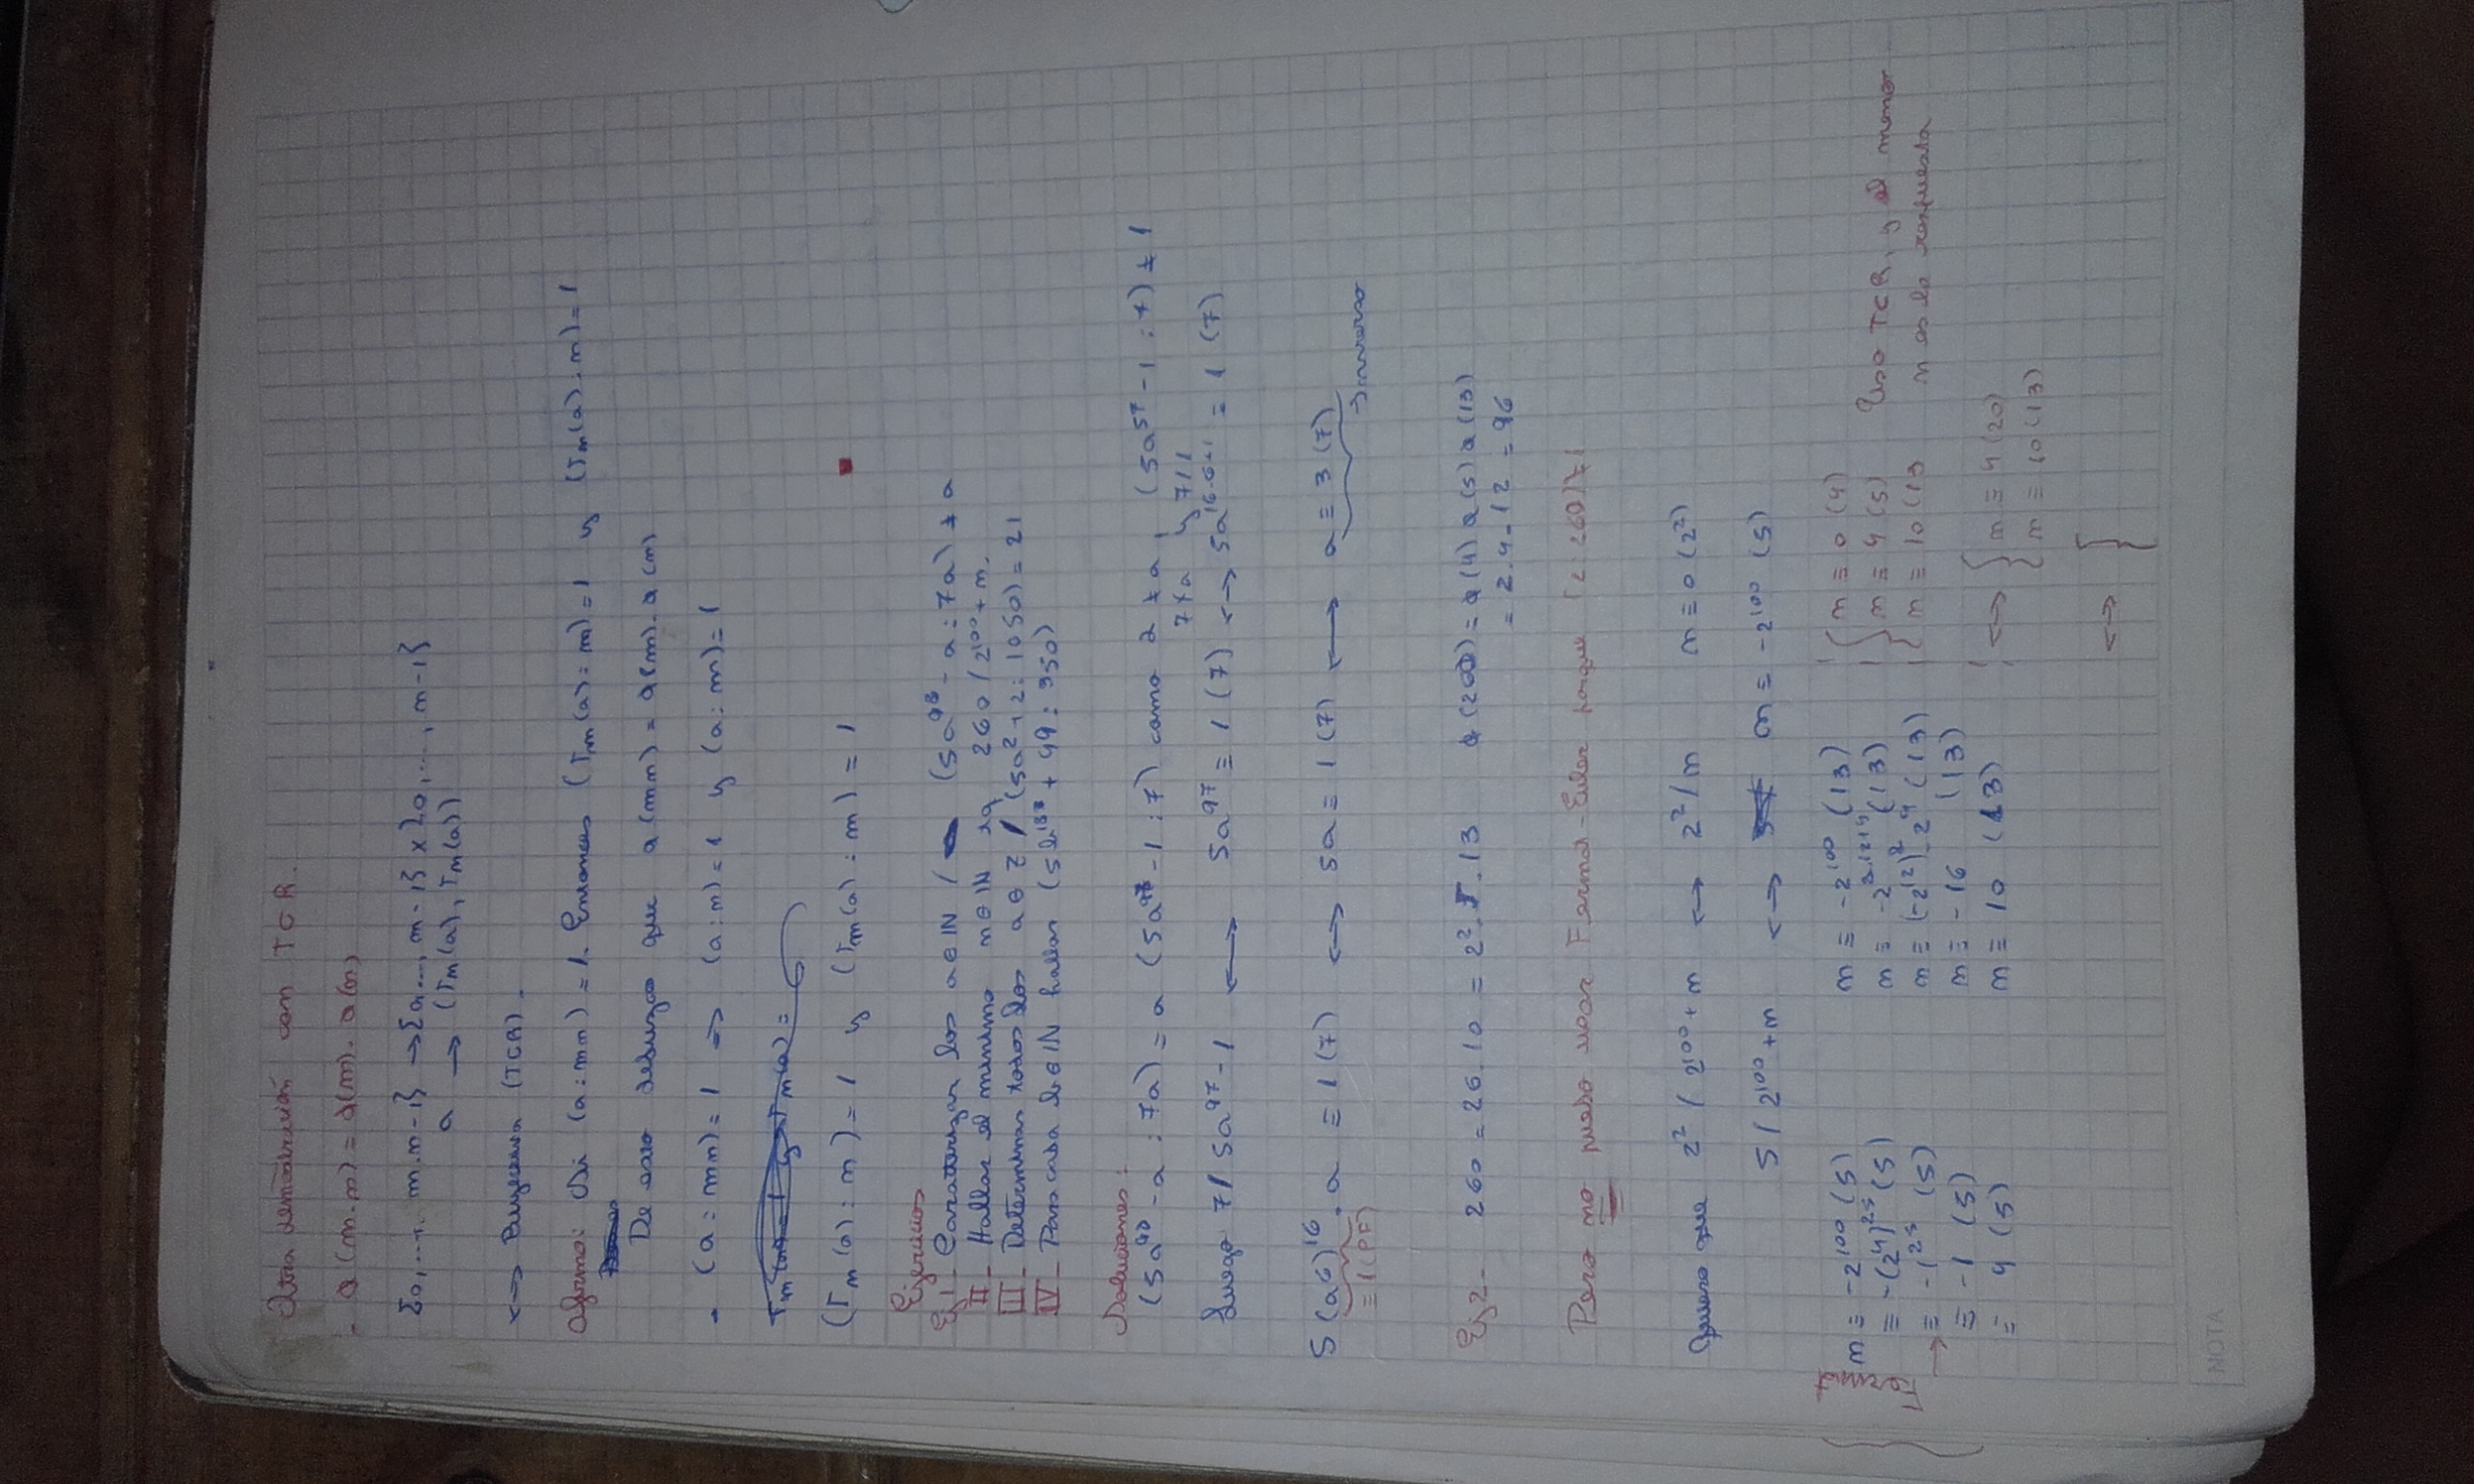 Otra demostración con TCR.
- φ(m.n) = φ(m). φ(n)
{0,..., m.n-1} → {0,..., m-1} x {0,..., n-1}
a → (rm(a), rn(a))
↔ Biyectiva (TCR).
Afirmo: Si (a:mn) = 1. Entonces (rm(a):m)=1 y (rn(a):n)=1
De esto deduzco que φ(mn) = φ(m). φ(n)
- (a:mn)=1 => (a:n)=1 y (a:m)=1
(rn(a):n)=1 y (rm(a):m)=1
Ejercicios
Ej 1- Caracterizar los a∈IN / (5a⁹⁸ - a : 7a) ≠ a
II - Hallar el mínimo n∈IN tq 260 / 2¹⁰⁰+n.
III - Determinar todos los a∈Z / (5a²+2 : 1050) = 21
IV - Para cada b∈IN hallar (5b¹³³ + 99 : 350)
Soluciones:
(5a⁹⁸ - a : 7a) = a (5a⁹⁷ - 1 : 7) como a ≠ a, (5a⁵⁷ - 1 : 7) ≠ 1
7∤a y 7/1
Luego 7/ 5a⁹⁷-1 ↔ 5a⁹⁷ ≡ 1 (7) ↔ 5a¹⁶·⁶⁺¹ ≡ 1 (7)
5(a⁶)¹⁶. a ≡ 1 (7) ↔ 5a ≡ 1 (7) ↔ a ≡ 3 (7)
≡ 1 (PF) → Inverso
Ej 2- 260 = 26.10 = 2².5.13 φ(260) = φ(4) φ(5) φ(13)
= 2.4.12 = 96
Pero no puedo usar Fermat-Euler porque (2:260)≠1
Quiero que 2² / 2¹⁰⁰+n ↔ 2²/n n ≡ 0 (2²)
5 / 2¹⁰⁰+n ↔ n ≡ -2¹⁰⁰ (5)
Fermat
n ≡ -2¹⁰⁰ (5) n ≡ -2¹⁰⁰ (13) { n ≡ 0 (4)
≡ -(2⁴)²⁵ (5) n ≡ -2⁸·¹²⁺⁴ (13) n ≡ 4 (5) Uso TCR, y el menor
→ ≡ -1²⁵ (5) n ≡ (-2¹²)⁸ 2⁴ (13) n ≡ 10 (13 n es la respuesta
≡ -1 (5) n ≡ -16 (13)
≡ 4 (5) n ≡ 10 (13) ↔ { n ≡ 4 (20)
n ≡ 10 (13)
↔ {
NOTA